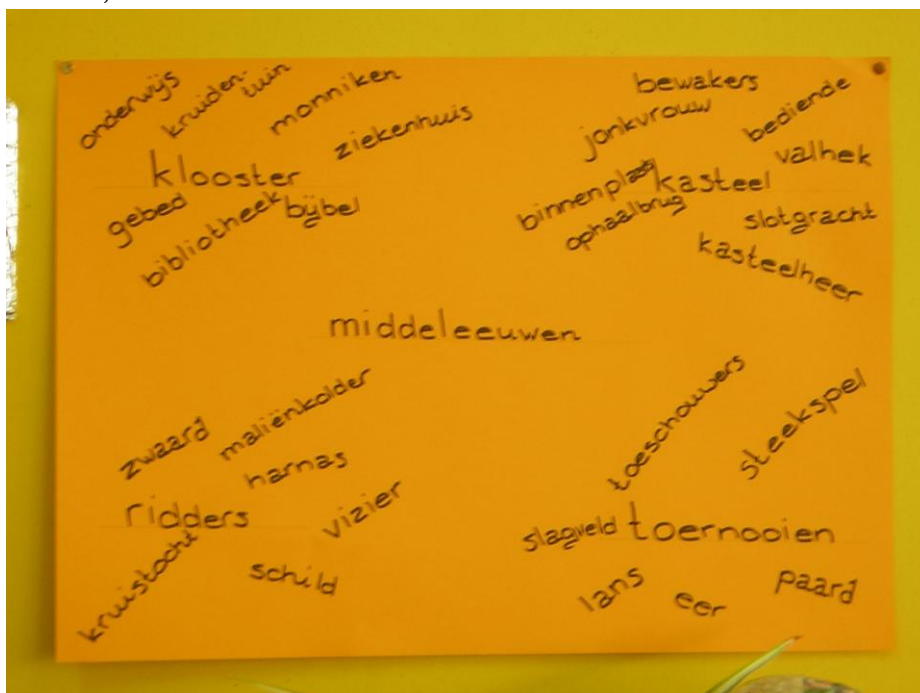 onderwijs
kruiden-
tuin
monniken
ziekenhuis
klooster
gebed
bibliotheek
bijbel
bewakers
jonkvrouw
bediende
valhek
binnenplaats
kasteel
ophaalbrug
slotgracht
kasteelheer
middeleeuwen
zwaard
maliënkolder
harnas
ridders
vizier
kruistocht
schild
toeschouwers
steekspel
slagveld
toernooien
lans
eer
paard